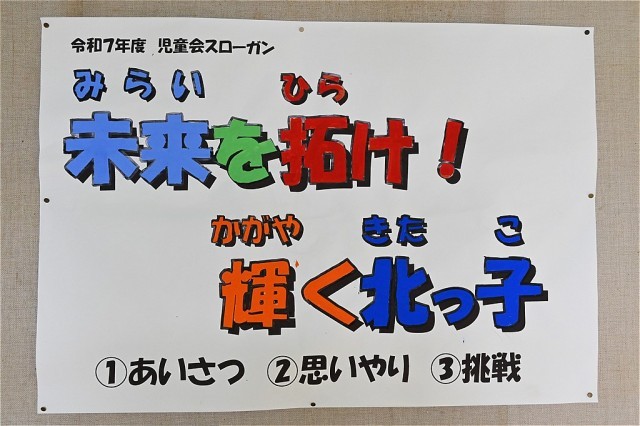 令和7年度 児童会スローガン
みらい ひら
未来を拓け！
かがや きた こ
輝く北っ子
①あいさつ ②思いやり ③挑戦